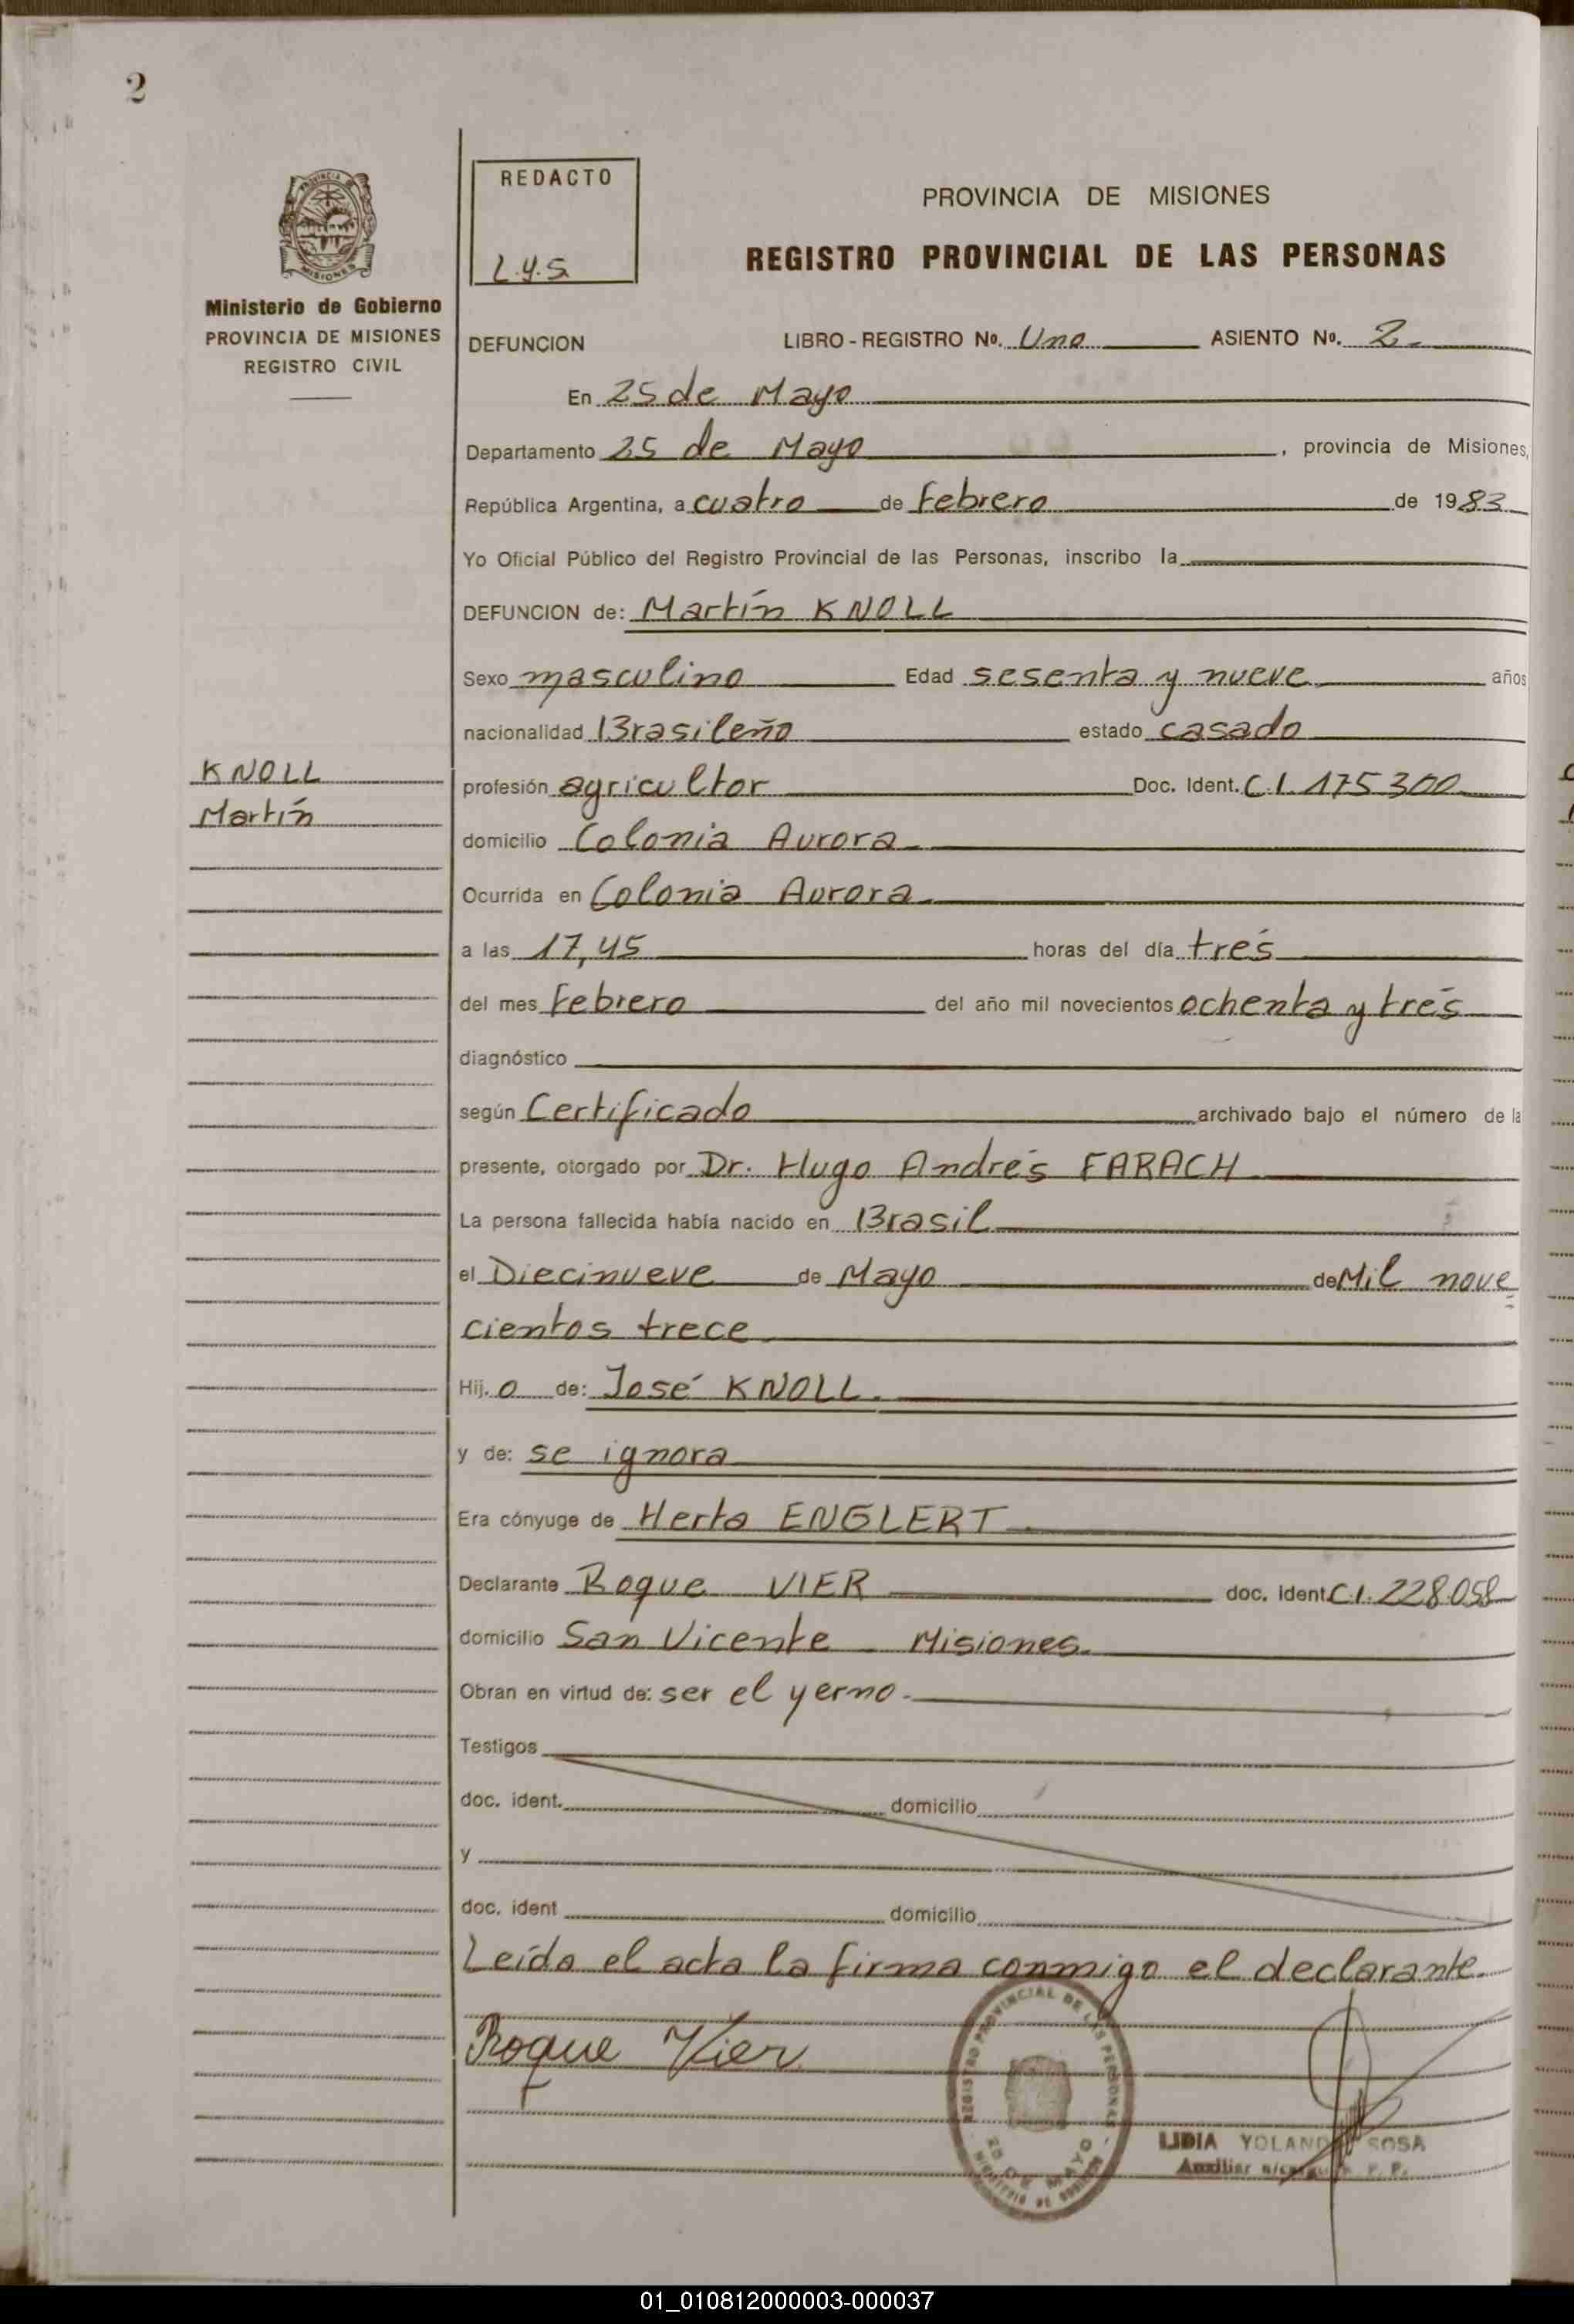 2
PROVINCIA DE
MISIONES
Ministerio de Gobierno
PROVINCIA DE MISIONES
REGISTRO CIVIL
REDACTO
L.Y.S.
PROVINCIA DE MISIONES
REGISTRO PROVINCIAL DE LAS PERSONAS
DEFUNCION LIBRO - REGISTRO No. Uno ASIENTO No. 2
En 25 de Mayo
Departamento 25 de Mayo, provincia de Misiones,
República Argentina, a cuatro de Febrero de 1983
Yo Oficial Público del Registro Provincial de las Personas, inscribo la
DEFUNCION de: Martín KNOLL
Sexo masculino Edad sesenta y nueve años
nacionalidad Brasileño estado casado
KNOLL
Martín
profesión agricultor Doc. Ident. C.I. 175300
domicilio Colonia Aurora
Ocurrida en Colonia Aurora
a las 17,45 horas del día trés
del mes Febrero del año mil novecientos ochenta y trés
diagnóstico
según Certificado archivado bajo el número de la
presente, otorgado por Dr. Hugo Andrés FARACH
La persona fallecida había nacido en Brasil
el Diecinueve de Mayo de Mil nove=
cientos trece
Hij.o de: José KNOLL.
y de: se ignora
Era cónyuge de Herta ENGLERT
Declarante Roque VIER doc. ident C.I. 228.058
domicilio San Vicente - Misiones.
Obran en virtud de: ser el yerno.-
Testigos
doc. ident. domicilio
y
doc. ident domicilio
Leída el acta la firma conmigo el declarante.
Roque Vier
REGISTRO PROVINCIAL DE LAS PERSONAS
25 DE MAYO
MINISTERIO DE GOBIERNO
LIDIA YOLANDA SOSA
Auxiliar
01_010812000003-000037